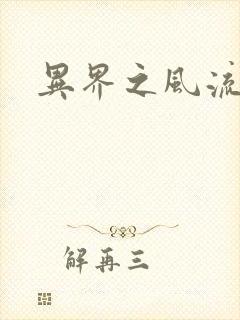 異界之風流
解再三